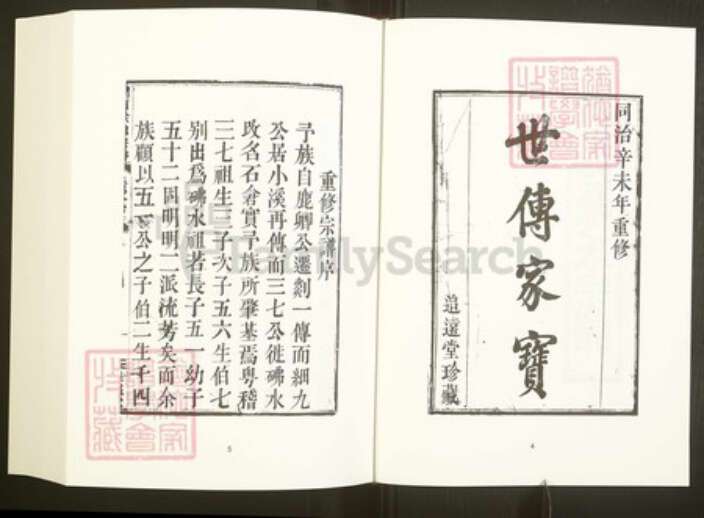 同治辛未年重修
世傳家寶
追遠堂珍藏
4
重修宗譜序
予族自鹿卿公遷剡一傳而細九
公居小溪再傳而三七公徙砩水
改名石倉實予族所肇基焉粵稽
三七祖生三子次子五六生伯七
别出為砩水祖若長子五一幼子
五十二固明明二派流芳矣而余
族顧以五一公之子伯二生千四
5
FamilySearch